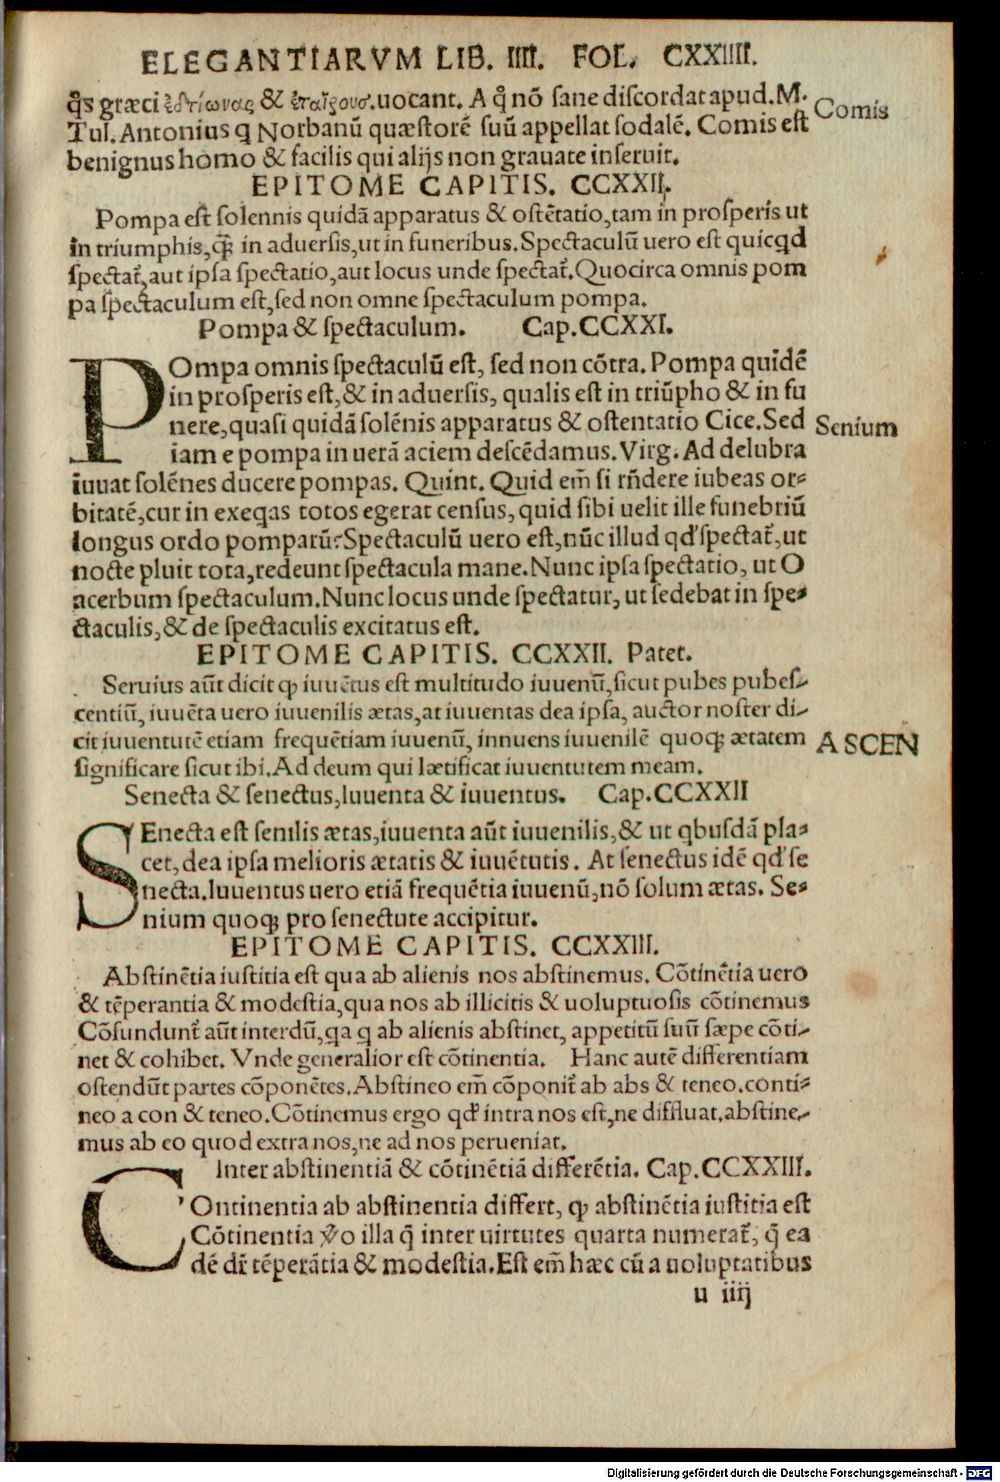 ELEGANTIARVM LIB. IIII. FOL. CXXIIII.
q̄s græci & .uocant. A q̊ nō sane discordat apud.M.
Comis
Tul. Antonius q Norbanū quæstorē suū appellat sodalē. Comis est
benignus homo & facilis qui alijs non grauate inseruit.
EPITOME CAPITIS. CCXXII.
Pompa est solennis quidā apparatus & ostētatio,tam in prosperis ut
in triumphis,q̄ꝫ in aduersis,ut in funeribus.Spectaculū uero est quicqd
spectat̃,aut ipsa spectatio,aut locus unde spectat̃.Quocirca omnis pom
pa spectaculum est,sed non omne spectaculum pompa.
Pompa & spectaculum. Cap.CCXXI.
POmpa omnis spectaculū est, sed non cōtra. Pompa quidē
in prosperis est,& in aduersis, qualis est in triūpho & in fu
nere,quasi quidā solēnis apparatus & ostentatio Cice.Sed
Senium
iam e pompa in uerā aciem descēdamus. Virg. Ad delubra
iuuat solēnes ducere pompas. Quint. Quid em̄ si rn̄dere iubeas or-
bitatē,cur in exeqas totos egerat census, quid sibi uelit ille funebriū
longus ordo pomparū?Spectaculū uero est,nūc illud qd' spectat̃,ut
nocte pluit tota,redeunt spectacula mane.Nunc ipsa spectatio, ut O
acerbum spectaculum.Nunc locus unde spectatur, ut sedebat in spe-
ctaculis,& de spectaculis excitatus est.
EPITOME CAPITIS. CCXXII. Patet.
Seruius aūt dicit ꝙ iuuētus est multitudo iuuenū,sicut pubes pubes-
centiū, iuuēta uero iuuenilis ætas,at iuuentas dea ipsa, auctor noster di-
cit iuuentutē etiam frequētiam iuuenū, innuens iuuenilē quoqꝫ ætatem
ASCEN
significare sicut ibi.Ad deum qui lætificat iuuentutem meam.
Senecta & senectus,Iuuenta & iuuentus. Cap.CCXXII
SEnecta est senilis ætas,iuuenta aūt iuuenilis,& ut qbusdā pla-
cet,dea ipsa melioris ætatis & iuuētutis. At senectus idē qd' se
necta.Iuuentus uero etiā frequētia iuuenū,nō solum ætas. Se-
nium quoqꝫ pro senectute accipitur.
EPITOME CAPITIS. CCXXIII.
Abstinētia iustitia est qua ab alienis nos abstinemus. Cōtinētia uero
& tēperantia & modestia,qua nos ab illicitis & uoluptuosis cōtinemus
Cōfundunt̃ aūt interdū,qa q ab alienis abstinet, appetitū suū sæpe cōti-
net & cohibet. Vnde generalior est cōtinentia. Hanc autē differentiam
ostendūt partes cōponētes.Abstineo em̄ cōponit̃ ab abs & teneo.conti-
neo a con & teneo.Cōtinemus ergo qd' intra nos est,ne diffluat.abstine-
mus ab eo quod extra nos,ne ad nos perueniat.
Inter abstinentiā & cōtinētiā differētia. Cap.CCXXIII.
COntinentia ab abstinentia differt, ꝙ abstinētia iustitia est
Cōtinentia v̊o illa q̄ inter uirtutes quarta numerat̃, q̄ ea
dē dr̄ tēperātia & modestia.Est em̄ hæc cū a uoluptatibus
u iiij
Digitalisierung gefördert durch die Deutsche Forschungsgemeinschaft - DFG